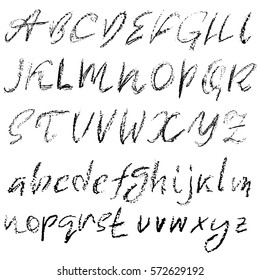 ABCDEFGHI
JKLMNOPQR
STUVWXYZ
abcdefghijklm
nopqrstuvwxyz
shutterstock.com · 572629192